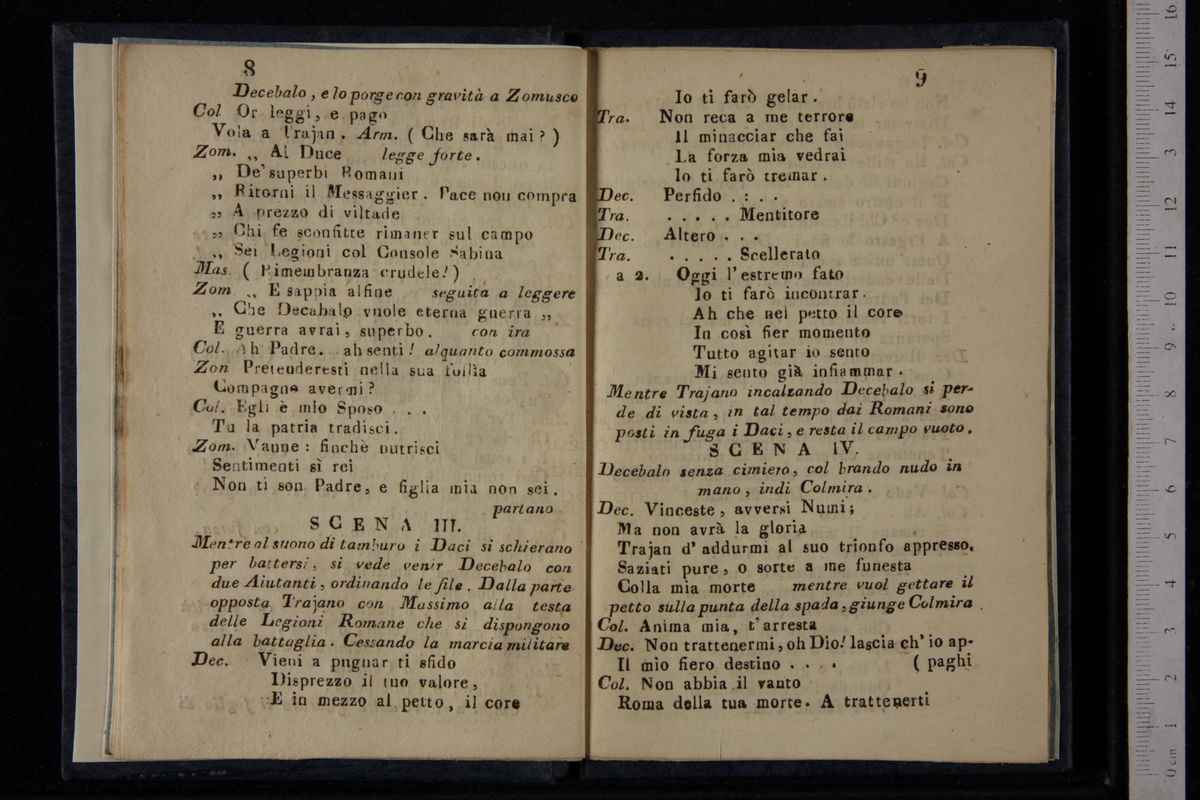 8
Decebalo, e lo porge con gravità a Zomusco
Col Or leggi, e pago
Vola a Trajan. Arm. ( Che sarà mai? )
Zom. „ Al Duce legge forte.
„ De' superbi Romani
„ Ritorni il Messaggier. Pace non compra
„ A prezzo di viltade
„ Chi fe sconfitte rimaner sul campo
„ Sei Legioni col Console Sabina
Mas. ( Rimembranza crudele! )
Zom „ E sappia alfine seguita a leggere
„ Che Decabalo vuole eterna guerra „
E guerra avrai, superbo. con ira
Col. Ah Padre. ah senti! alquanto commossa
Zon Pretenderesti nella sua follia
Compagne avermi?
Col. Egli è mio Sposo . . .
Tu la patria tradisci.
Zom. Vanne: finchè nutrisci
Sentimenti sì rei
Non ti son Padre, e figlia mia non sei.
partano
SCENA III.
Mentre al suono di tamburo i Daci si schierano
per battersi, si vede venir Decebalo con
due Aiutanti, ordinando le file. Dalla parte
opposta Trajano con Massimo alla testa
delle Legioni Romane che si dispongono
alla battaglia. Cessando la marcia militare
Dec. Vieni a pugnar ti sfido
Disprezzo il tuo valore,
E in mezzo al petto, il core
9
Io ti farò gelar.
Tra. Non reca a me terrore
Il minacciar che fai
La forza mia vedrai
Io ti farò tremar.
Dec. Perfido . : . .
Tra. . . . . . Mentitore
Dec. Altero . . .
Tra. . . . . . Scellerato
a 2. Oggi l'estremo fato
Io ti farò incontrar.
Ah che nel petto il core
In così fier momento
Tutto agitar io sento
Mi sento già infiammar.
Mentre Trajano incalzando Decebalo si per-
de di vista, in tal tempo dai Romani sono
posti in fuga i Daci, e resta il campo vuoto.
SCENA IV.
Decebalo senza cimiero, col brando nudo in
mano, indi Colmira.
Dec. Vinceste, avversi Numi;
Ma non avrà la gloria
Trajan d' addurmi al suo trionfo appresso.
Saziati pure, o sorte a me funesta
Colla mia morte mentre vuol gettare il
petto sulla punta della spada, giunge Colmira.
Col. Anima mia, t'arresta
Dec. Non trattenermi, oh Dio! lascia ch'io ap-
Il mio fiero destino . . . . ( paghi
Col. Non abbia il vanto
Roma della tua morte. A trattenerti
0 cm 1 2 3 4 5 6 7 8 9 10 11 12 13 14 15 16